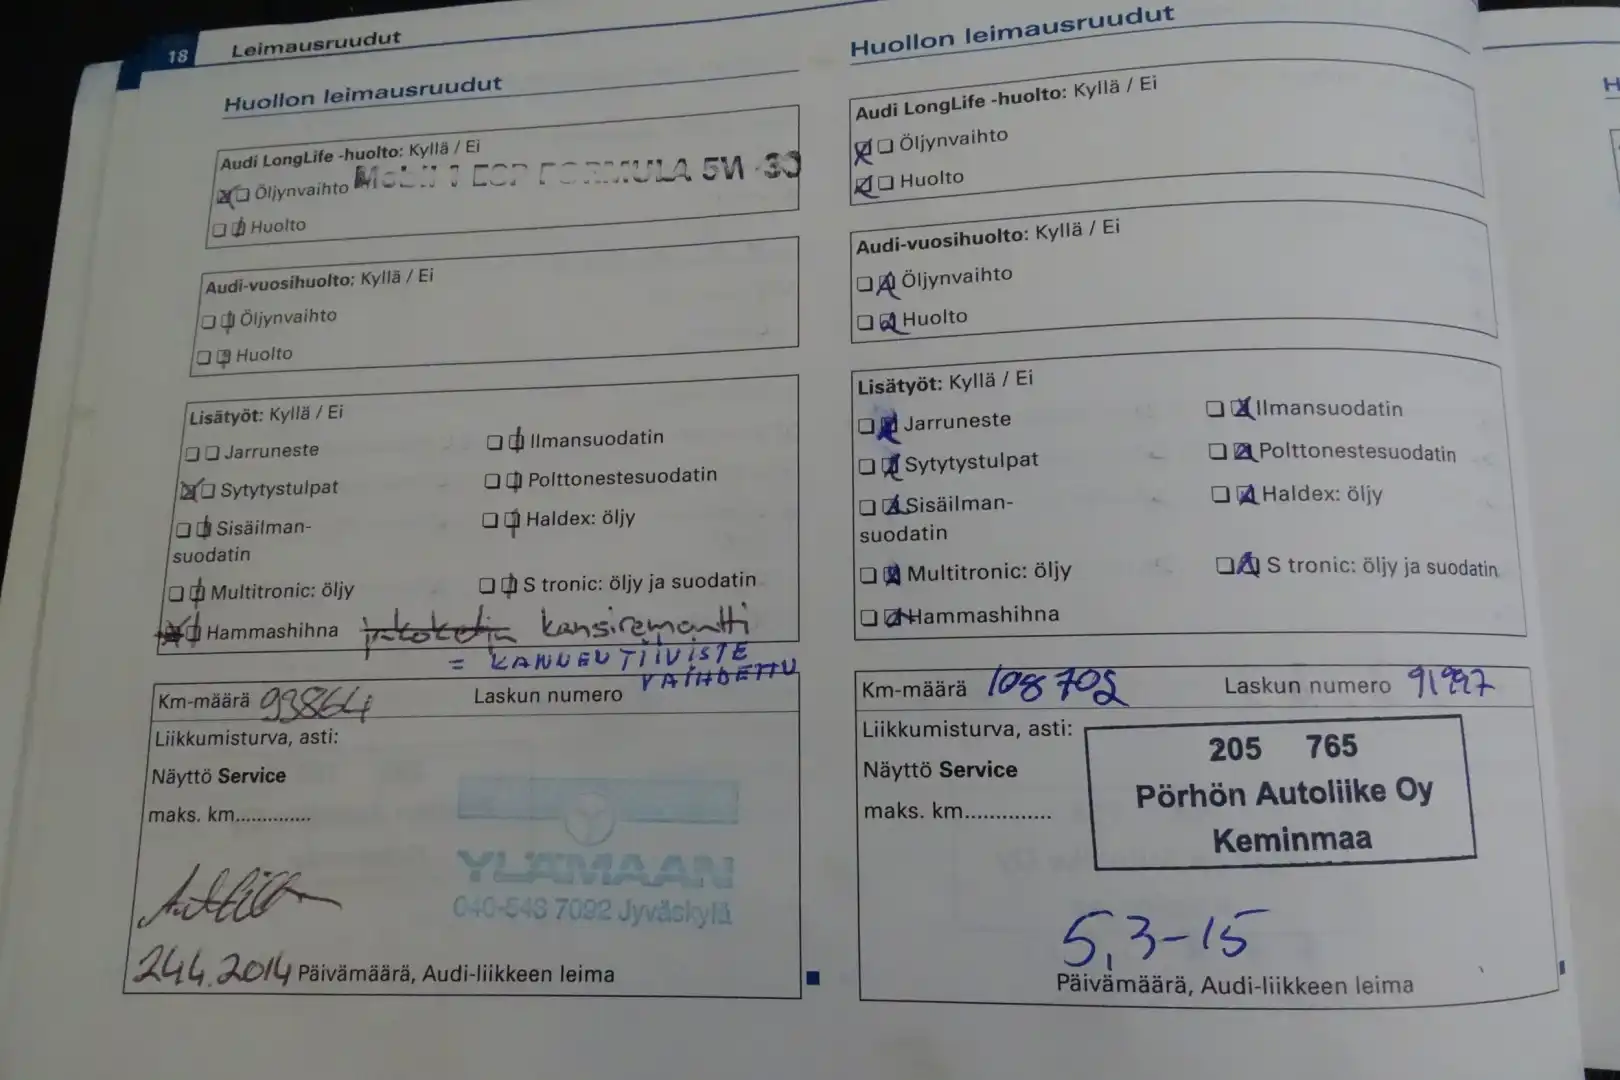 18 Leimausruudut
Huollon leimausruudut
Audi LongLife -huolto: Kyllä / Ei
Öljynvaihto Mobil 1 ESP FORMULA 5W-30
Huolto
Audi-vuosihuolto: Kyllä / Ei
Öljynvaihto
Huolto
Lisätyöt: Kyllä / Ei
Jarruneste
Ilmansuodatin
Sytytystulpat
Polttonestesuodatin
Sisäilman-
suodatin
Haldex: öljy
Multitronic: öljy
S tronic: öljy ja suodatin
Hammashihna jakoketju kansiremontti
= KANNEN TIIVISTE
VAIHDETTU
Km-määrä 93864
Laskun numero
Liikkumisturva, asti:
Näyttö Service
maks. km..............
YLÄMAAN
040-543 7092 Jyväskylä
24.4.2014 Päivämäärä, Audi-liikkeen leima
Huollon leimausruudut
Audi LongLife -huolto: Kyllä / Ei
Öljynvaihto
Huolto
Audi-vuosihuolto: Kyllä / Ei
Öljynvaihto
Huolto
Lisätyöt: Kyllä / Ei
Jarruneste
Ilmansuodatin
Sytytystulpat
Polttonestesuodatin
Sisäilman-
suodatin
Haldex: öljy
Multitronic: öljy
S tronic: öljy ja suodatin
Hammashihna
Km-määrä 108702
Laskun numero 91997
Liikkumisturva, asti:
Näyttö Service
maks. km..............
205 765
Pörhön Autoliike Oy
Keminmaa
5,3-15
Päivämäärä, Audi-liikkeen leima
H